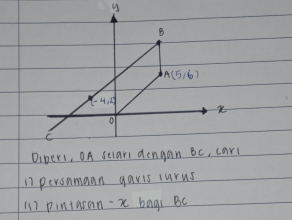 y
B
A(5,6)
(-4,2)
x
O
C
Diberi, OA selari dengan BC, cari
i) persamaan garis lurus
ii) pintasan -x bagi BC